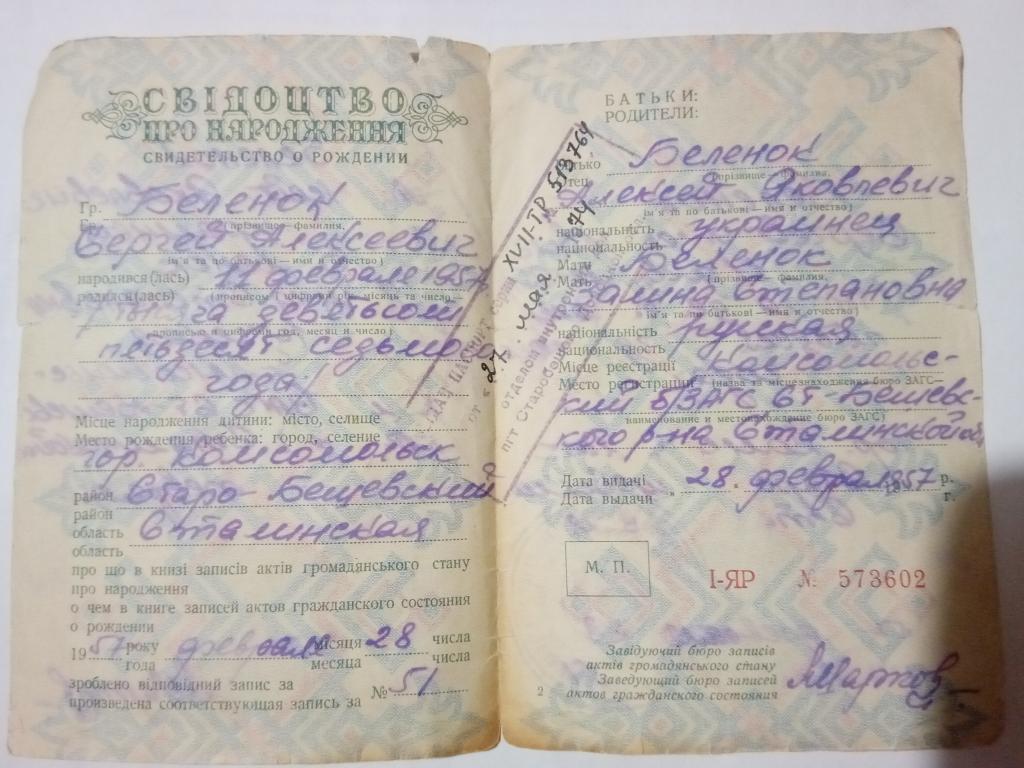 СВІДОЦТВО
ПРО НАРОДЖЕННЯ
СВИДЕТЕЛЬСТВО О РОЖДЕНИИ
Гр. Беленок
Гр. (прізвище — фамилия)
Сергей Алексеевич
ім'я та по батькові—имя и отчество)
народився(лась) февраля 1957
родился(лась) (прописом і цифрами рік, місяць та число,
девятьсот
прописью и цифрами год, месяц и число)
пятьдесят седьмого
года
Місце народження дитини: місто, селище
Место рождения ребенка: город, селение
гор. Комсомольск
район Старо-Бешевский
район
область Сталинская
область
про що в книзі записів актів громадянського стану
про народження
о чем в книге записей актов гражданского состояния
о рождении
1957 року февраля місяця 28 числа
года месяца числа
зроблено відповідний запис за
произведена соответствующая запись за № 51
БАТЬКИ:
РОДИТЕЛИ:
Батько Беленок
Отец (прізвище—фамилия)
Алексей Яковлевич
ім'я та по батькові—имя и отчество)
національність украинец
национальность
Мати Беленок
Мать (прізвище—фамилия)
Галина Степановна
ім'я та по батькові—имя и отчество)
національність русская
национальность
Місце реєстрації Комсомольс-
Место регистрации (назва за місцезнаходження бюро ЗАГС—
кий б/ЗАГС Ст-Бешевс-
наименование и местонахождение бюро ЗАГС)
кого р-на Сталинской обл
Дата видачі р.
Дата выдачи „ 28 „ февраля 1957 г.
М. П.
I-ЯР № 573602
Завідуючий бюро записів
актів громадянського стану
Заведующий бюро записей
актов гражданского состояния
2
паспорт серия XVII-ГР 513764
от « 27 » мая 74
отделом внутренних
пгт Старобешево